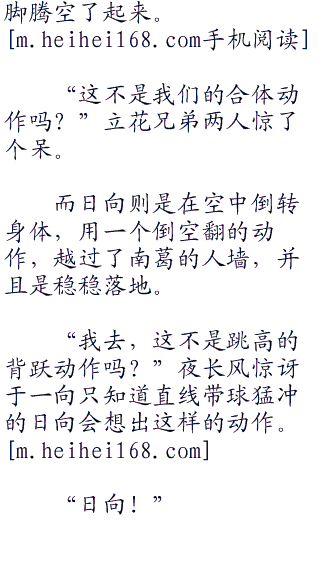 脚腾空了起来。
[m.heihei168.com手机阅读]
“这不是我们的合体动
作吗？”立花兄弟两人惊了
个呆。
而日向则是在空中倒转
身体，用一个倒空翻的动
作，越过了南葛的人墙，并
且是稳稳落地。
“我去，这不是跳高的
背跃动作吗？”夜长风惊讶
于一向只知道直线带球猛冲
的日向会想出这样的动作。
[m.heihei168.com]
“日向！”